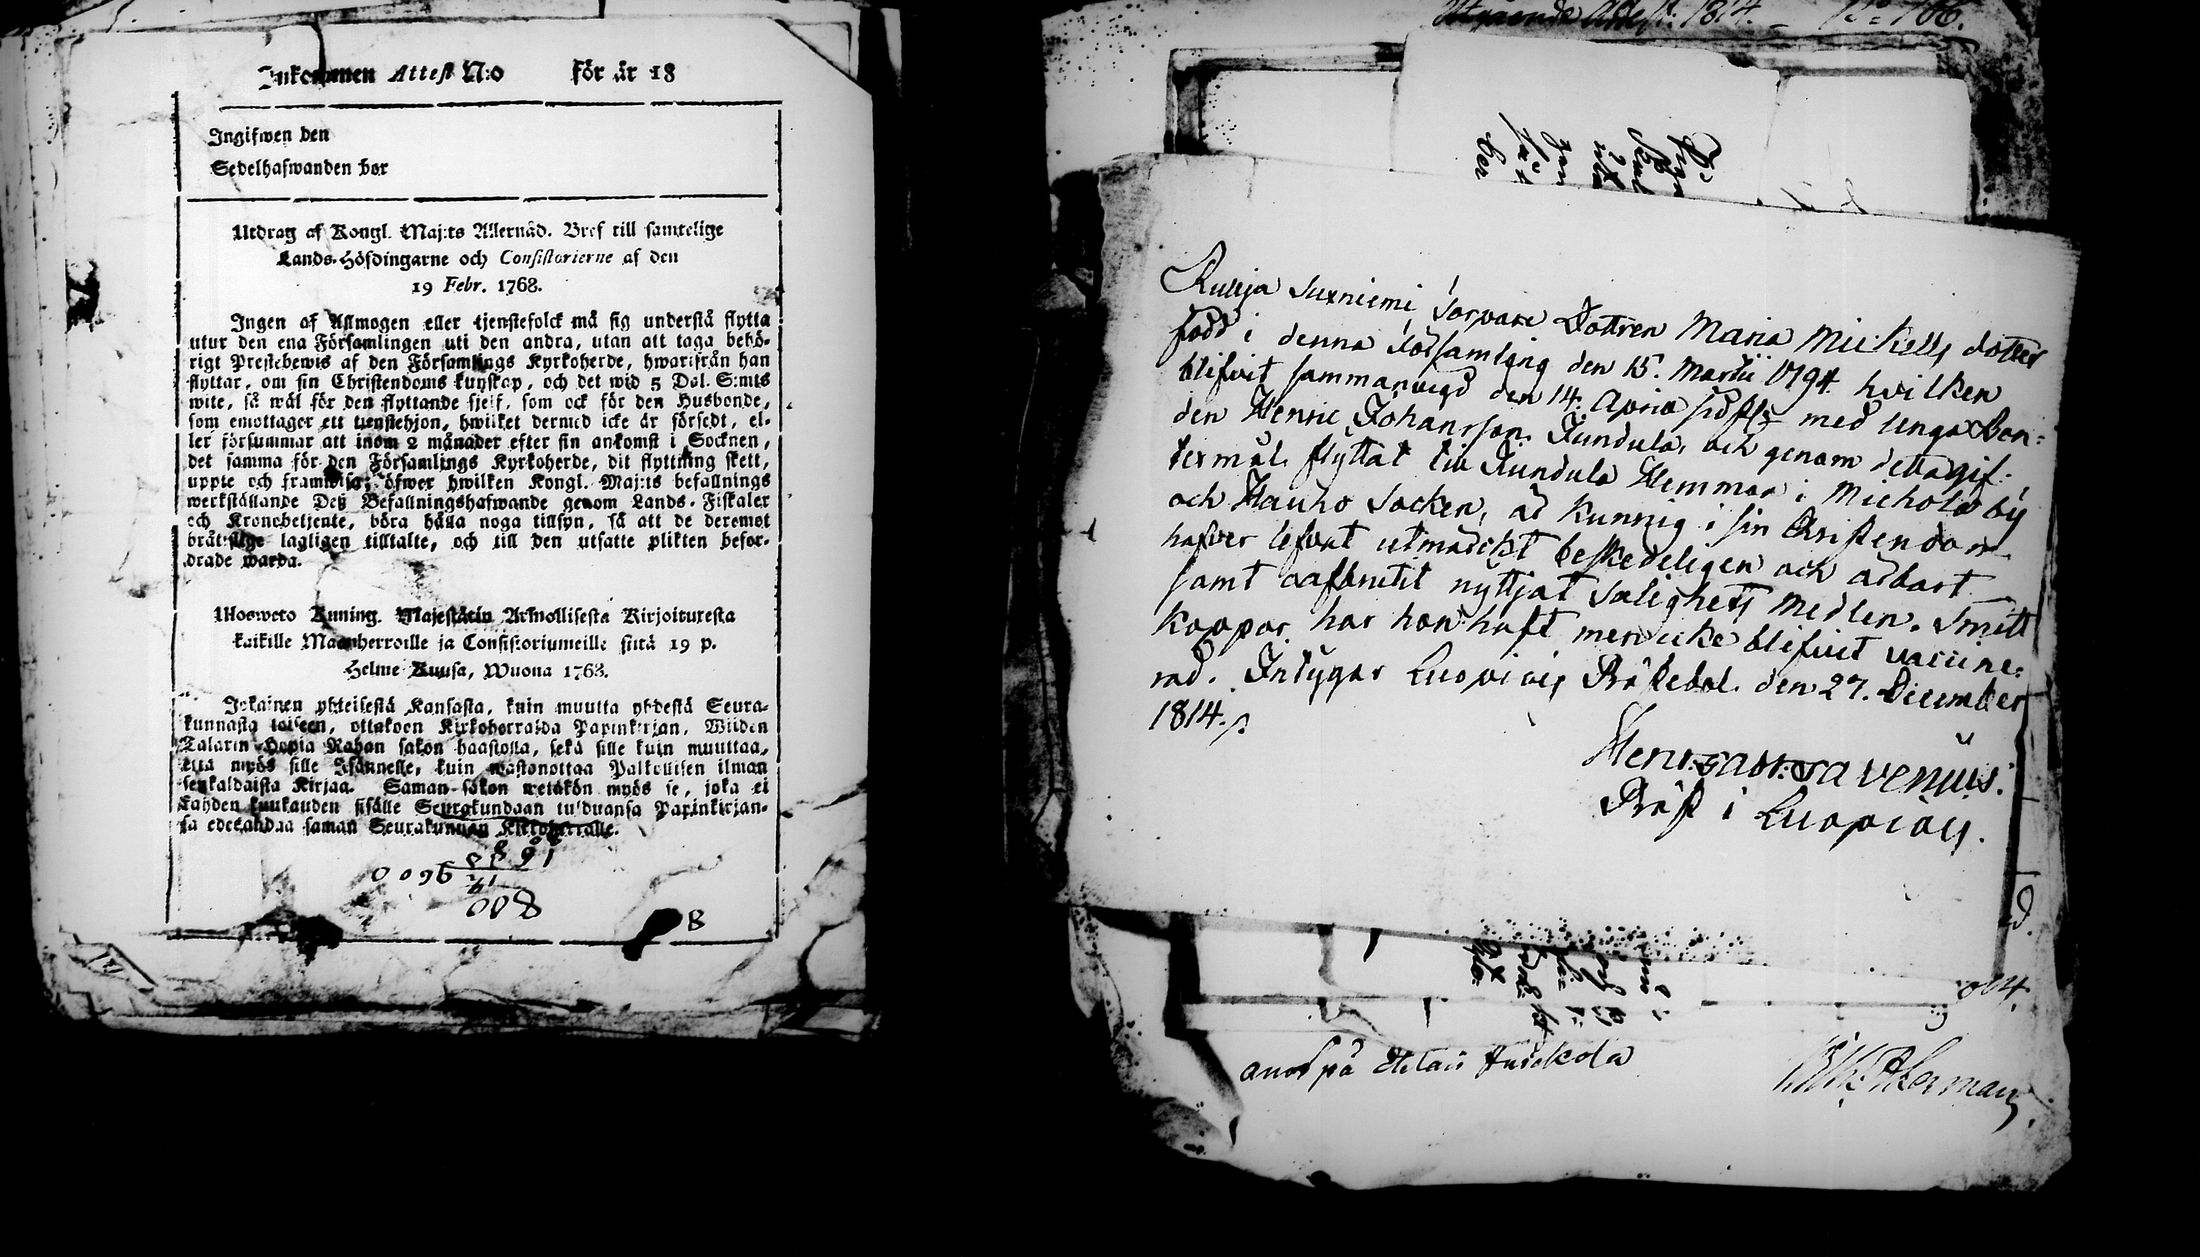 Inkommen Attest N:o för år 18
Ingifwen den
Sedelhafwanden bor
Utdrag af Kongl. Maj:ts Allernåd. Bref till samtelige
Lands-Höfdingarne och Consistorierne af den
19 Febr. 1768.
Ingen af Allmogen eller tjenstefolck må sig understå flytta
utur den ena Församlingen uti den andra, utan att taga behö-
rigt Prestebewis af den Församlings Kyrkoherde, hwarifrån han
flyttar, om sin Christendoms kunskap, och det wid 5 Dal. S:mts
wite, så wäl för den flyttande sjelf, som ock för den Husbonde,
som emottager ett tjenstehjon, hwilket dermed icke är försedt, el-
ler försummar att inom 2 månader efter sin ankomst i Socknen,
det samma för den Församlings Kyrkoherde, dit flyttning skett,
uppte och framwisa; öfwer hwilken Kongl. Maj:ts befallnings
werkställande Deß Befallningshafwande genom Lands-Fiskaler
och Kronobetjente, böra hålla noga tillsyn, så att de deremot
brätslige lagligen tilltalte, och till den utsatte plikten befor-
drade warda.
Ulosweto Kuning. Majestätin Armollisesta Kirjoituresta
kaikille Maanherroille ja Consistoriumeille siitä 19 p.
Helme Kuusa, Wuona 1768.
Jokainen yhteisestä Kansasta, kuin muutta yhdestä Seura-
kunnasta toiseen, ottakoon Kirkoherralda Papinkirjan, Wiiden
Talarin Hopia Rahan sakon haastolla, sekä sille kuin muuttaa,
että myös sille Isännelle, kuin wastonottaa Palkollisen ilman
senkaldaista Kirjaa. Saman sakon wetäkön myös se, joka ei
kahden kuukauden sisälle Seurakundaan tulduansa Papinkirjan-
sa edesandaa saman Seurakunnan Kirkoherralle.
8
Utgående Attest 1814. N:o 166.
Rulija Suxniemi Torpare Dottren Maria Mickels dotter
född i denna Församling den 15. Martii 1794 hvilken
blifvit sammanvigd den 14. April sidstl. med Unga Bon-
den Henric Johansson Jundula, och genom detta gif-
termål flyttat till Jundula Hemman i Michola by
och Hauho Socken, är kunnig i sin Christendom
hafver lefvat utmärckt beskedeligen och ärbart
samt oafbrutit nyttjat Salighets medlen. Smitt
koppor har hon haft men icke blifvit vaccine-
rad. Intygar Luopiois Prästebol. den 27. December
1814.
Henr: Gabr: Tavenius.
Präst i Luopiois.